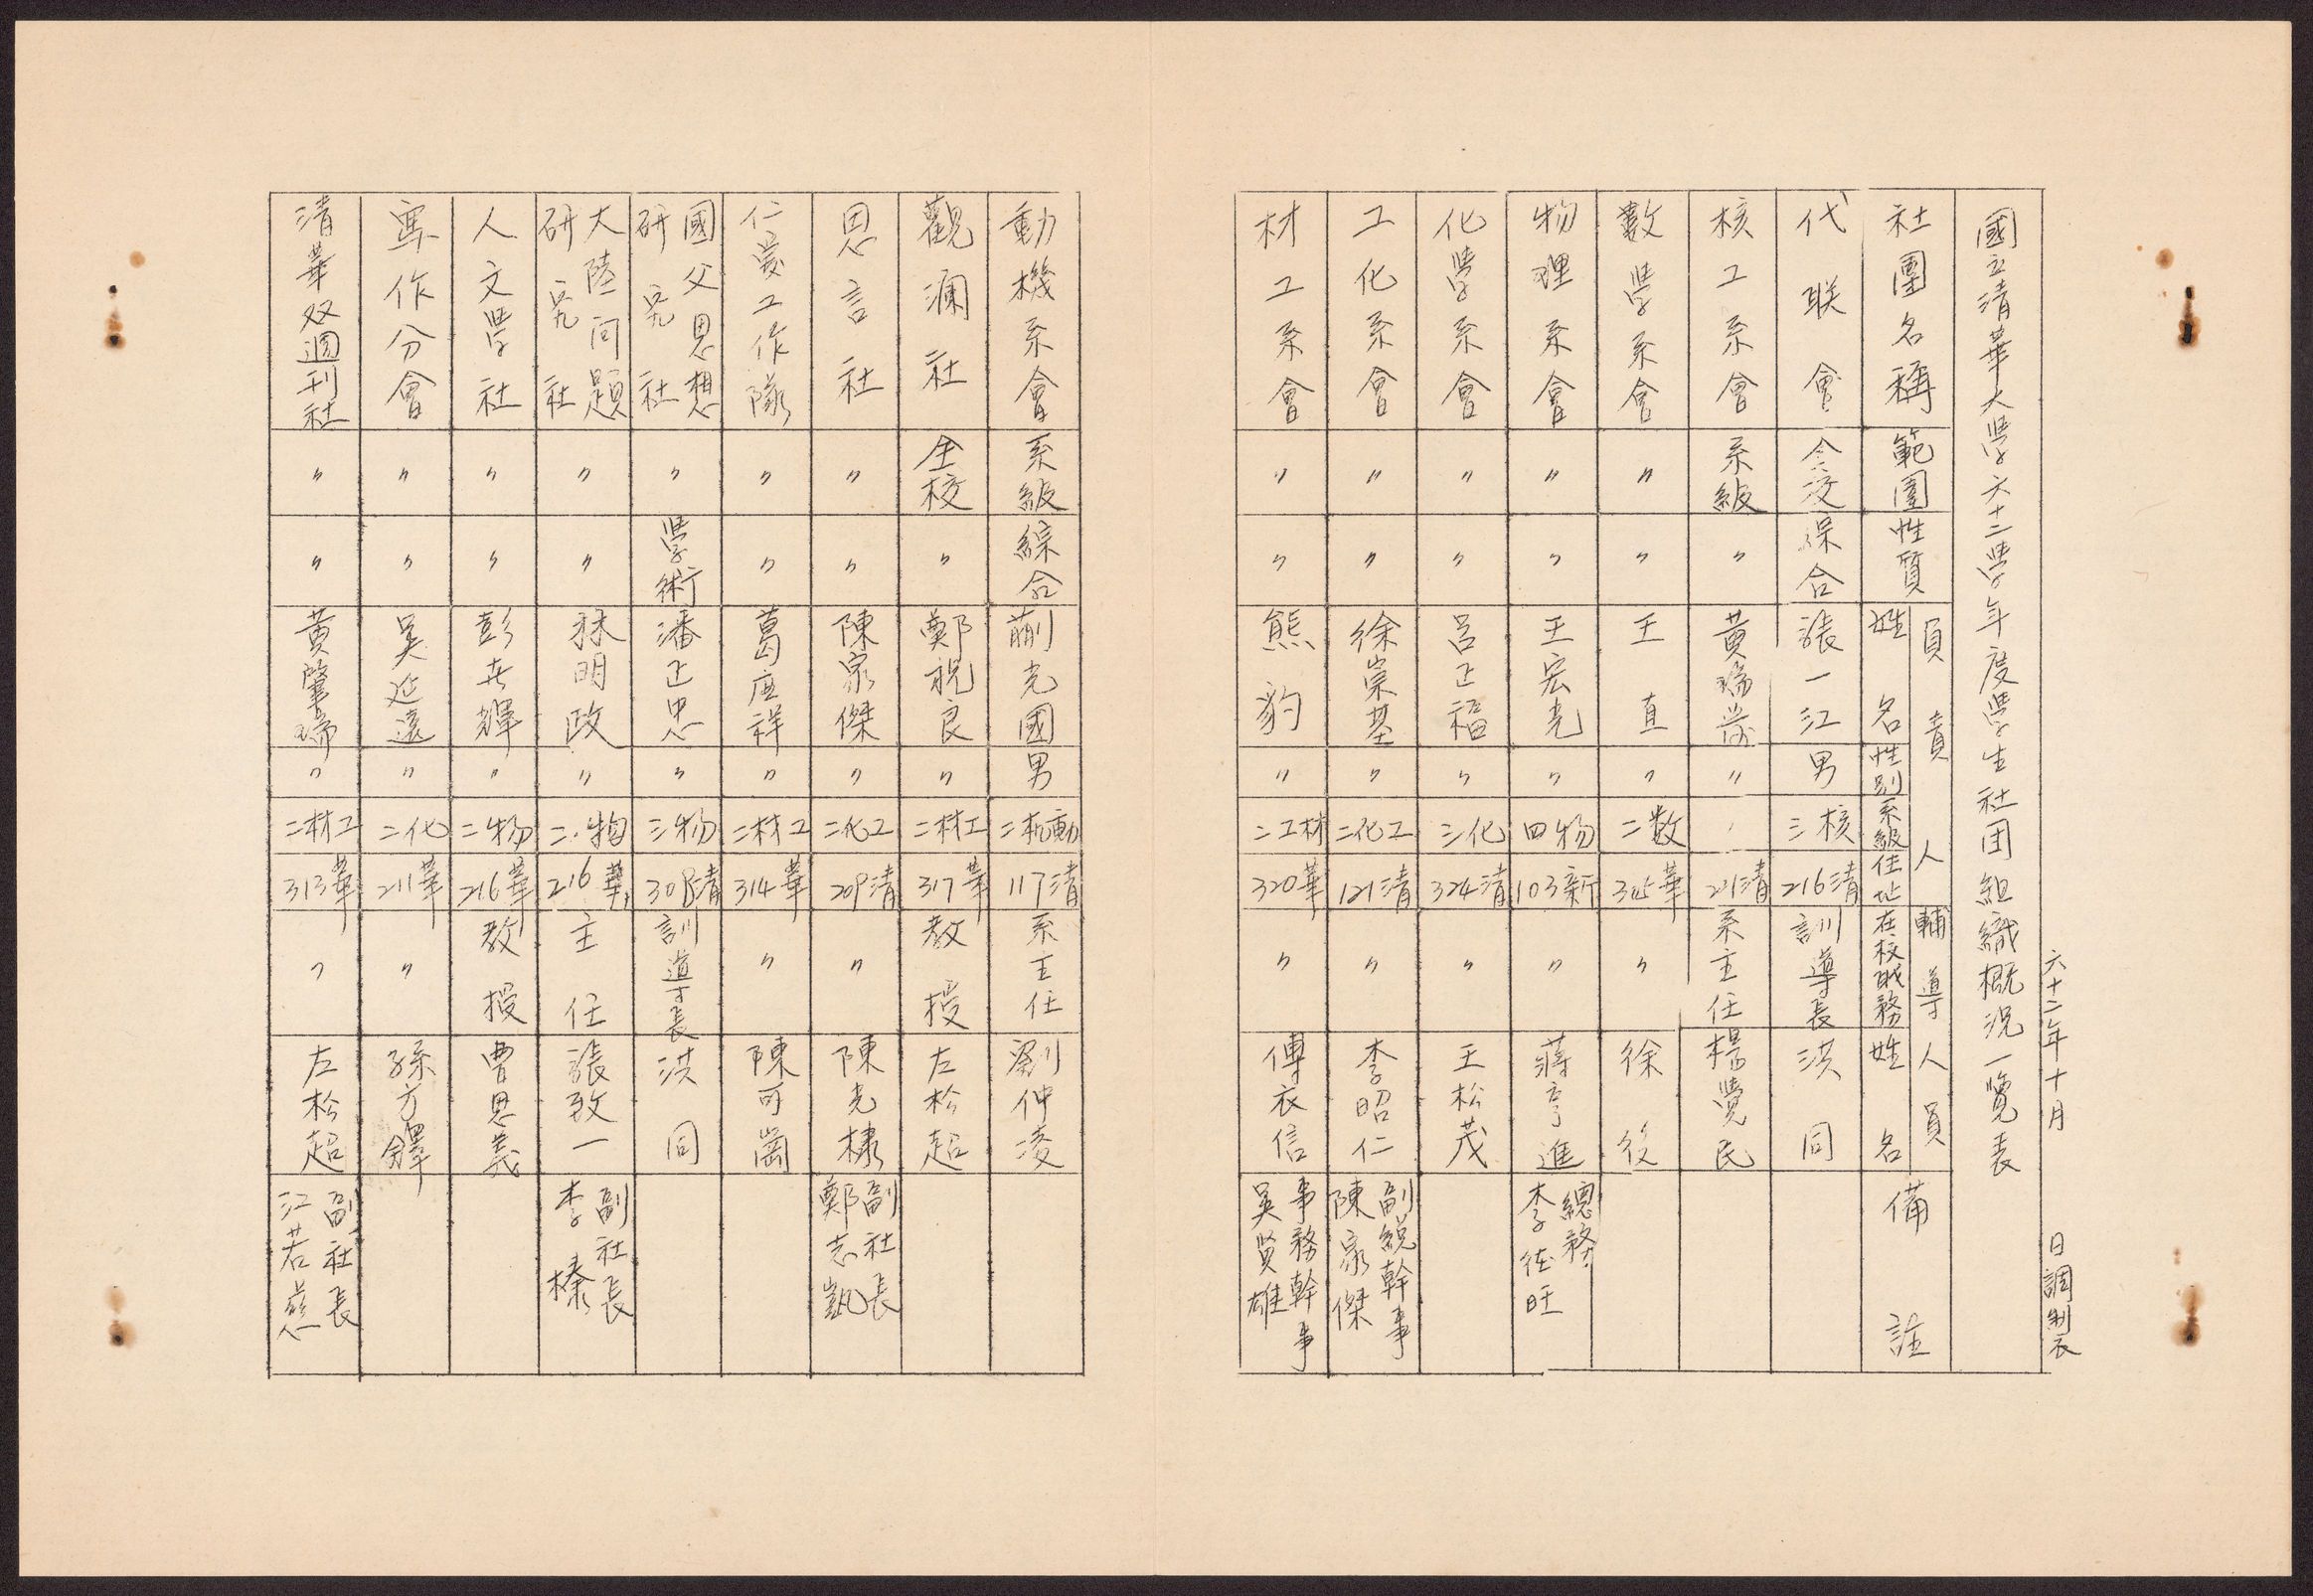 國立清華大學六十二學年度學生社団組織概況一覽表
六十二年十月 日調制表
社團名稱 範圍 性質 負責人 姓名 性別 系級 住址 輔導人員 在校職務 姓名 備註
代联會 全校 綜合 張一江 男 三核 216清 訓導長 洪同
核工系會 系級 〃 黃瑞 〃 〃 221清 系主任 楊覺民
數學系會 〃 〃 王直 〃 二数 華 〃 徐
物理系會 〃 〃 王宏光 〃 四物 103新 〃 蔣亨進 總務 李 旺
化學系會 〃 〃 呂正福 〃 三化 324清 〃 王松茂
工化系會 〃 〃 徐崇基 〃 二化工 121清 〃 李昭仁 副総幹事 陳家傑
材工系會 〃 〃 熊豹 〃 二工材 320華 〃 傅衣信 事務幹事 吳賢雄
動機系會 系級 綜合 蒯光國 男 二机動 117清 系主任 劉仲凌
觀瀾社 全校 〃 鄭祝良 〃 二材工 317華 教授 左松超
思言社 〃 〃 陳家傑 〃 二化工 209清 〃 陳光棣 副社長 鄭志凱
仁愛工作隊 〃 〃 葛 祥 〃 二材工 314華 〃 陳可崗
國父思想研究社 〃 學術 潘正忠 〃 三物 308清 訓導長 洪同
大陸问題研究社 〃 〃 林明政 〃 二物 216華 主任 張致一 副社長 李榛
人文學社 〃 〃 彭 輝 〃 二物 216華 教授 曹思義
寫作分會 〃 〃 吳延遠 〃 二化 211華 〃 孫方鐸
清華双週刊社 〃 〃 黃肇瑞 〃 二材工 313華 〃 左松超 副社長 江若慈